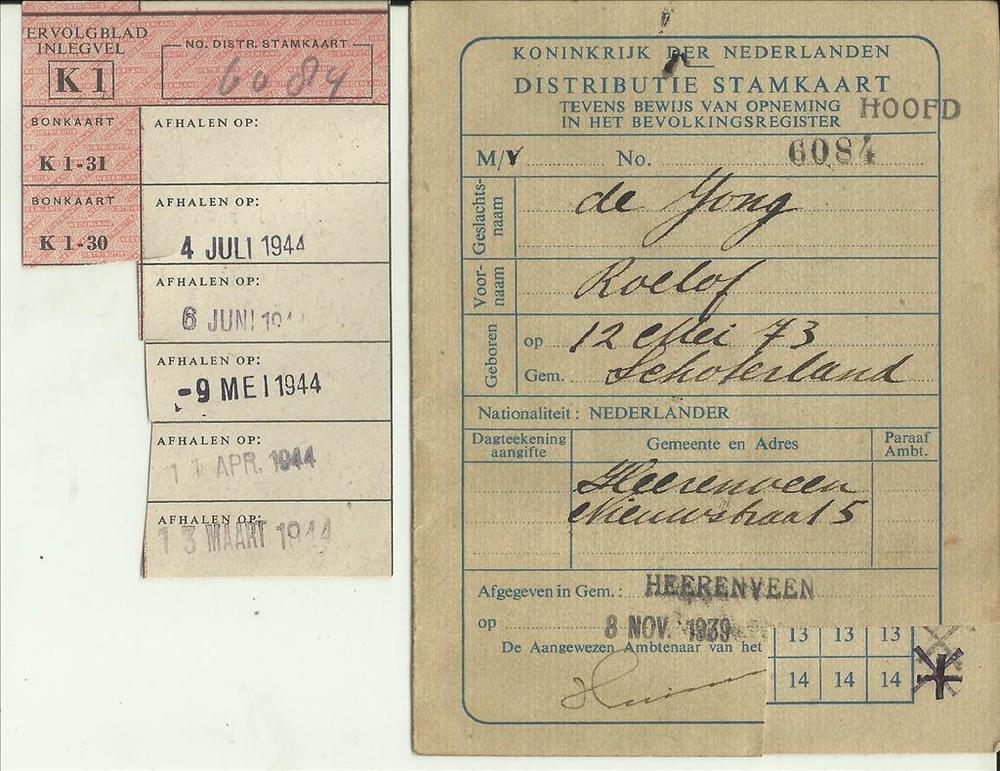 ERVOLGBLAD
INLEGVEL
K 1
NO. DISTR. STAMKAART
6084
BONKAART
K 1-31
AFHALEN OP:
BONKAART
K 1-30
AFHALEN OP:
4 JULI 1944
AFHALEN OP:
6 JUNI 19
AFHALEN OP:
-9 MEI 1944
AFHALEN OP:
1 1 APR. 1944
AFHALEN OP:
1 3 MAART 1944
KONINKRIJK DER NEDERLANDEN
DISTRIBUTIE STAMKAART
TEVENS BEWIJS VAN OPNEMING
IN HET BEVOLKINGSREGISTER
HOOFD
M/V No. 6084
Geslachts-
naam
de Jong
Voor-
naam
Roelof
Geboren
op 12 Mei 73
Gem. Schoterland
Nationaliteit: NEDERLANDER
Dagteekening
aangifte
Gemeente en Adres
Paraaf
Ambt.
Heerenveen
Nieuwstraat 5
Afgegeven in Gem.: HEERENVEEN
op 8 NOV. 1939
De Aangewezen Ambtenaar van het
13 13 13
14 14 14